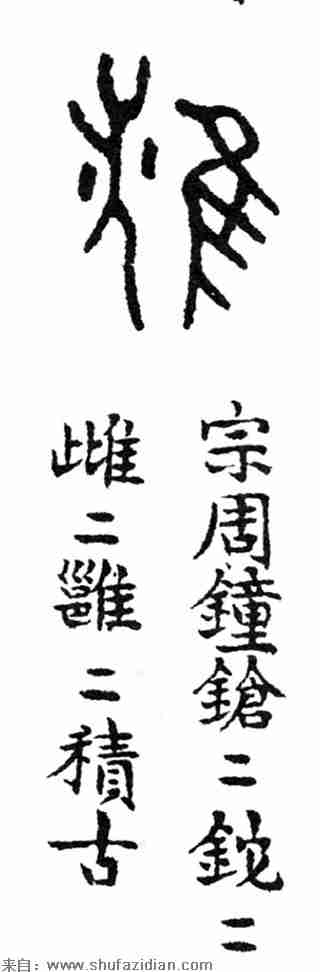 宗周鐘鎗二鉈二
雌二雝二積古
来自：www.shufazidian.com